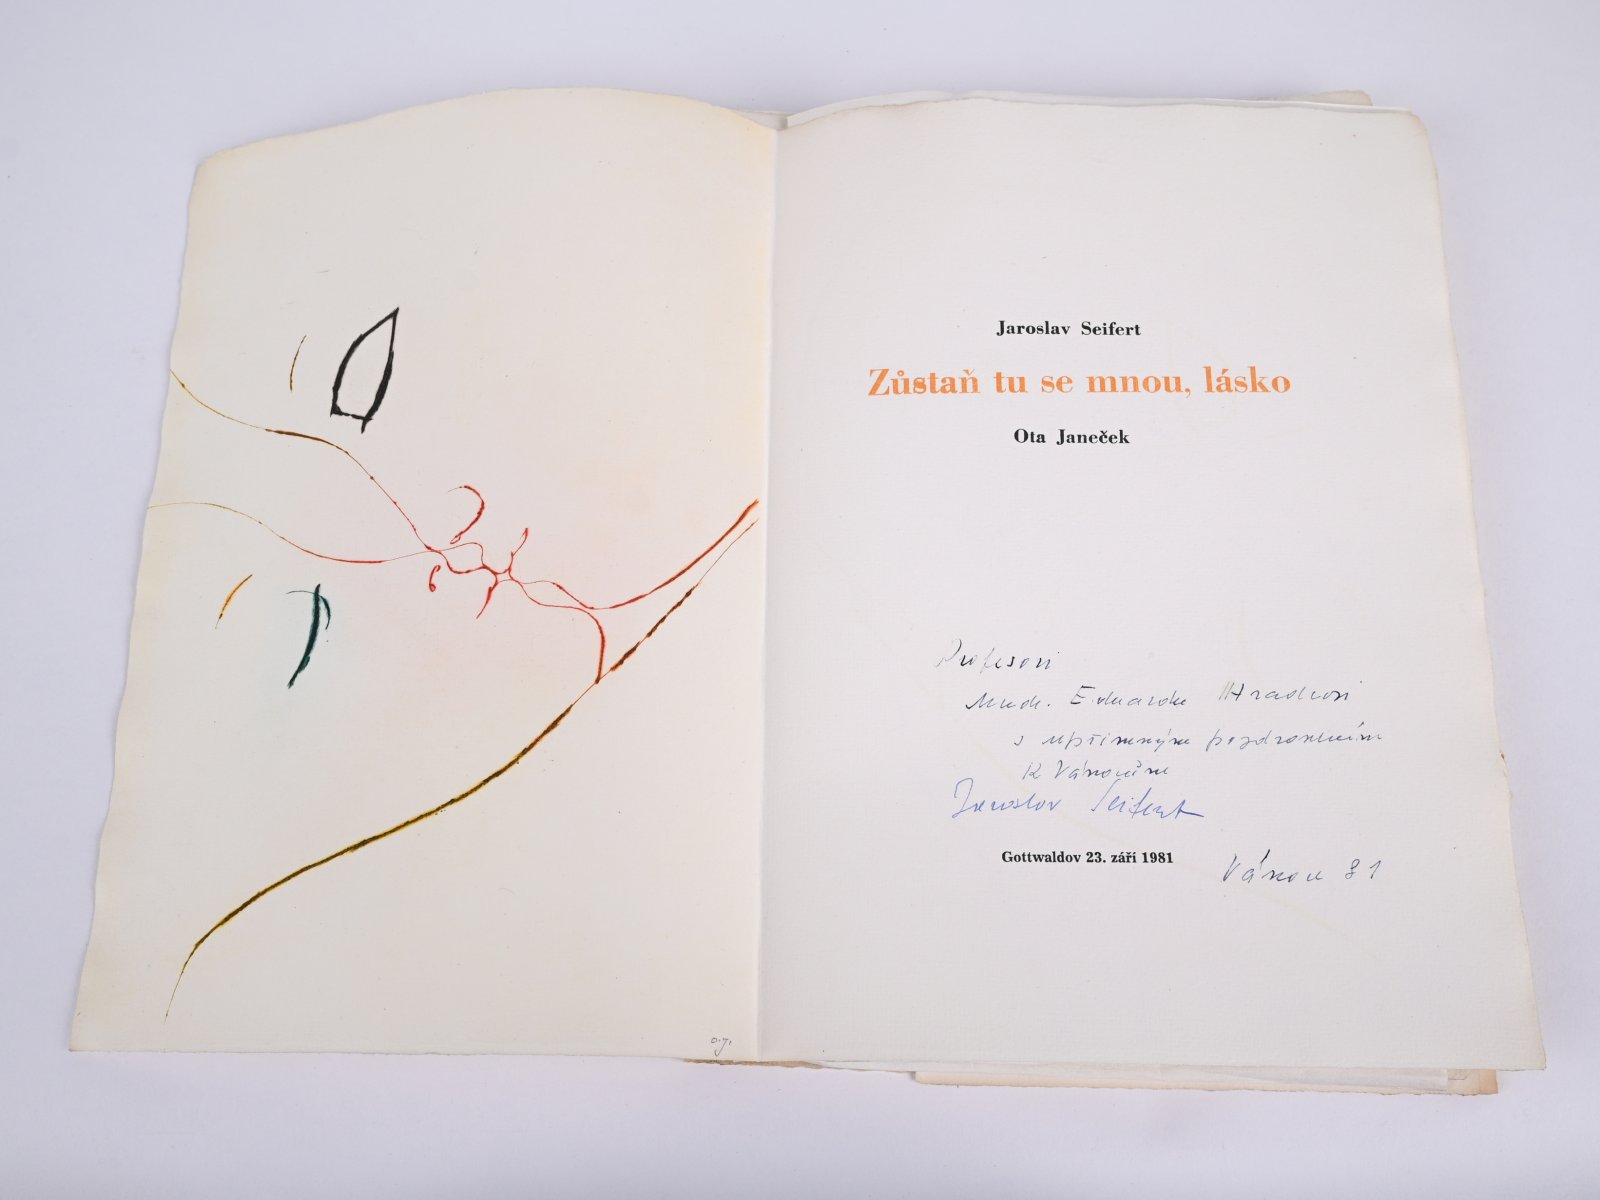 o.j.
Jaroslav Seifert
Zůstaň tu se mnou, lásko
Ota Janeček
Profesori
Mudr. Eduardu Hradcovi
s upřímným pozdravením
K Vánocům
Jaroslav Seifert
Gottwaldov 23. září 1981
Vánoce 81